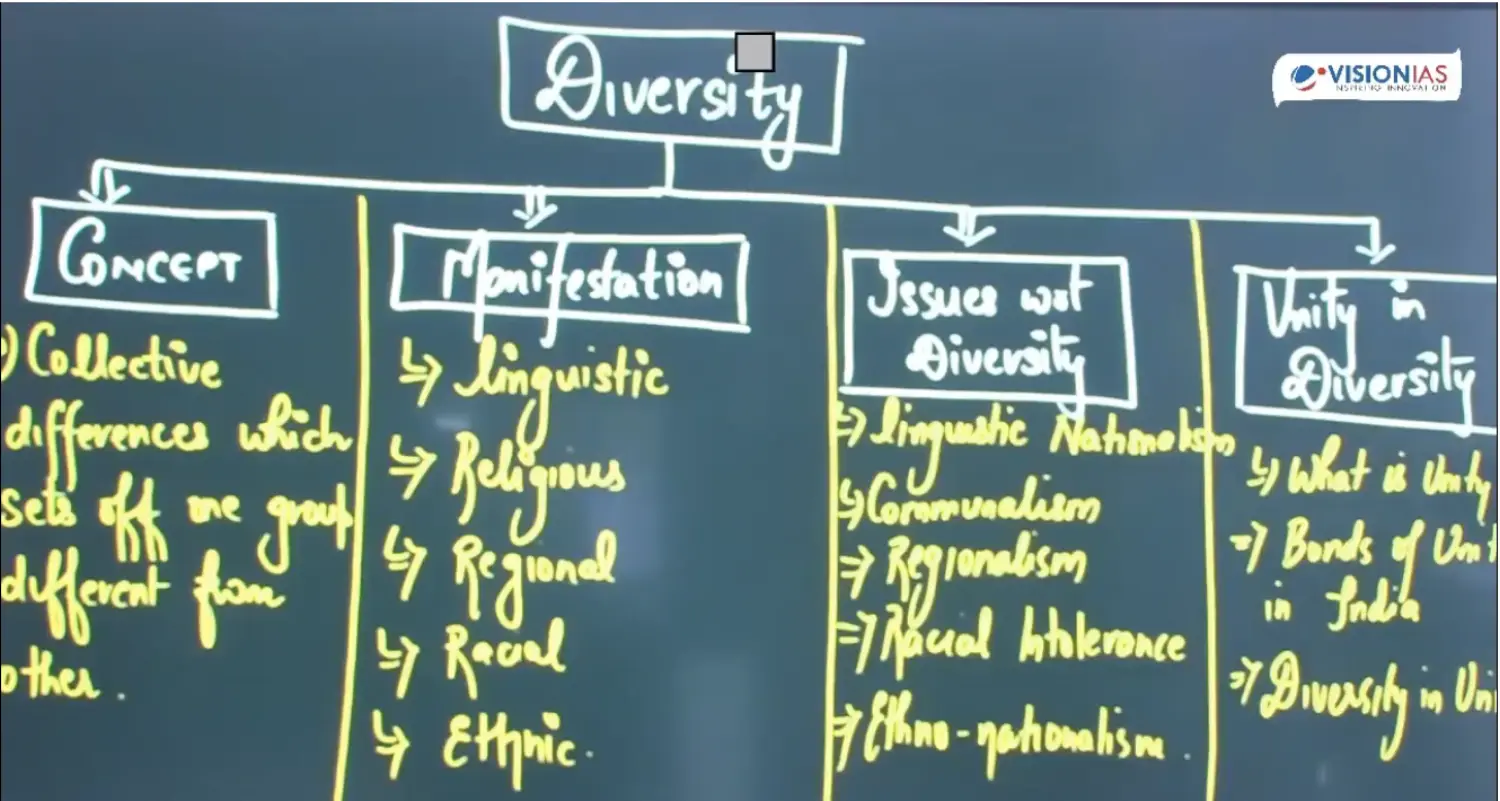 Diversity
VISIONIAS
INSPIRING INNOVATION
CONCEPT
) Collective
differences which
sets off one group
different from
other.
Manifestation
↳ linguistic
↳ Religious
↳ Regional
↳ Racial
↳ Ethnic.
Issues wrt
Diversity
↳ linguistic Nationalism
↳ Communalism
⇒ Regionalism
⇒ Racial Intolerance
⇒ Ethno-nationalism.
Unity in
Diversity
↳ What is Unity
⇒ Bonds of Unit
in India
⇒ Diversity in Uni